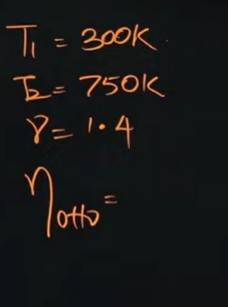 T₁ = 300K
T₂ = 750K
γ = 1.4
η otto =